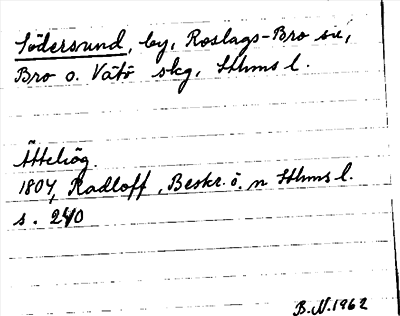 Södersund, by, Roslags-Bro sn,
Bro o. Vätö skg, Sthms l.
Ättehög.
1804, Radloff, Beskr. ö. n Sthms l.
s. 240
B.N. 1962